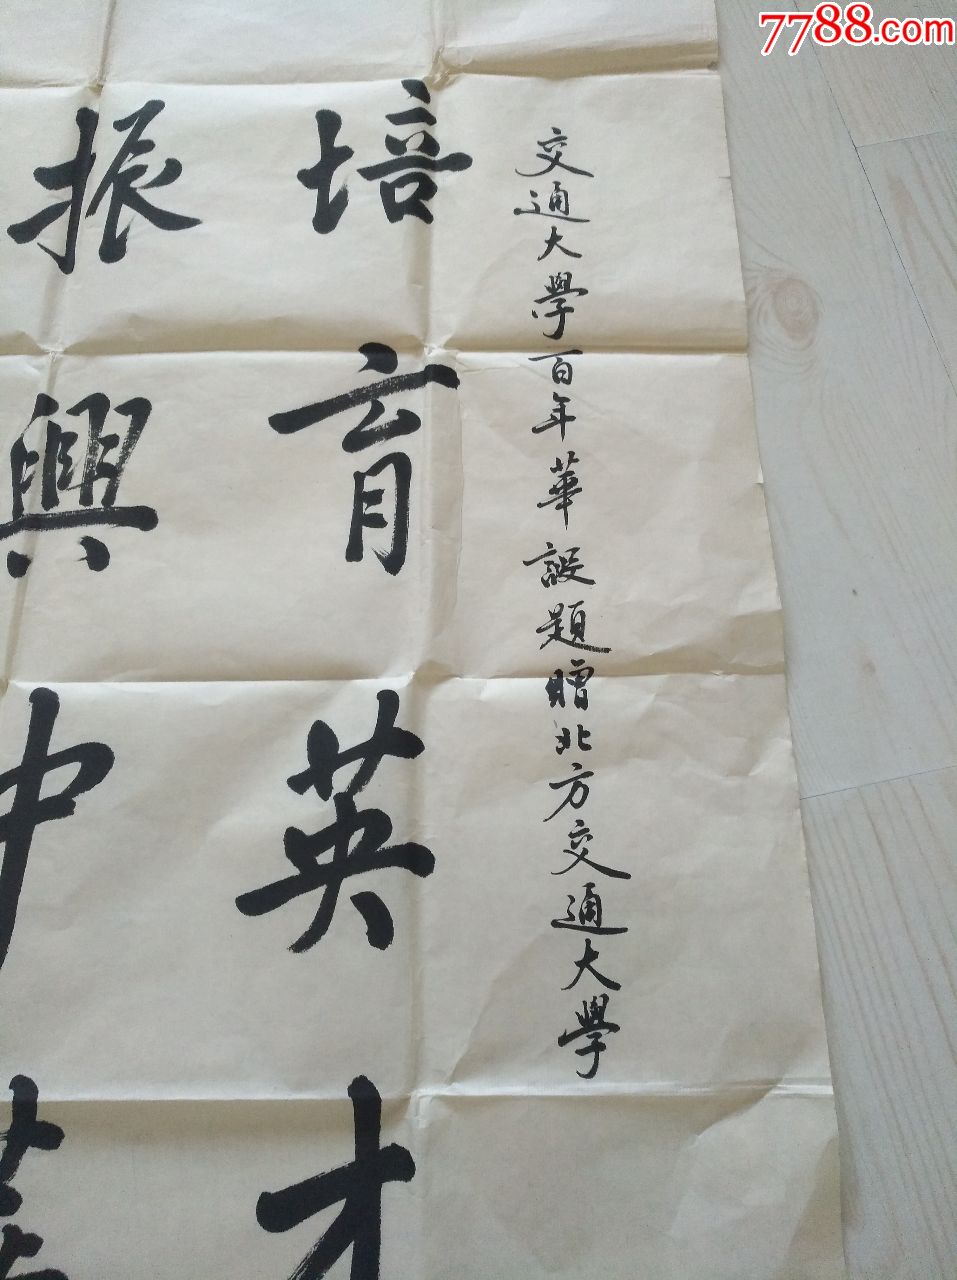 7788.com
交通大學百年華誕題贈北方交通大學
培育英才
振興中華